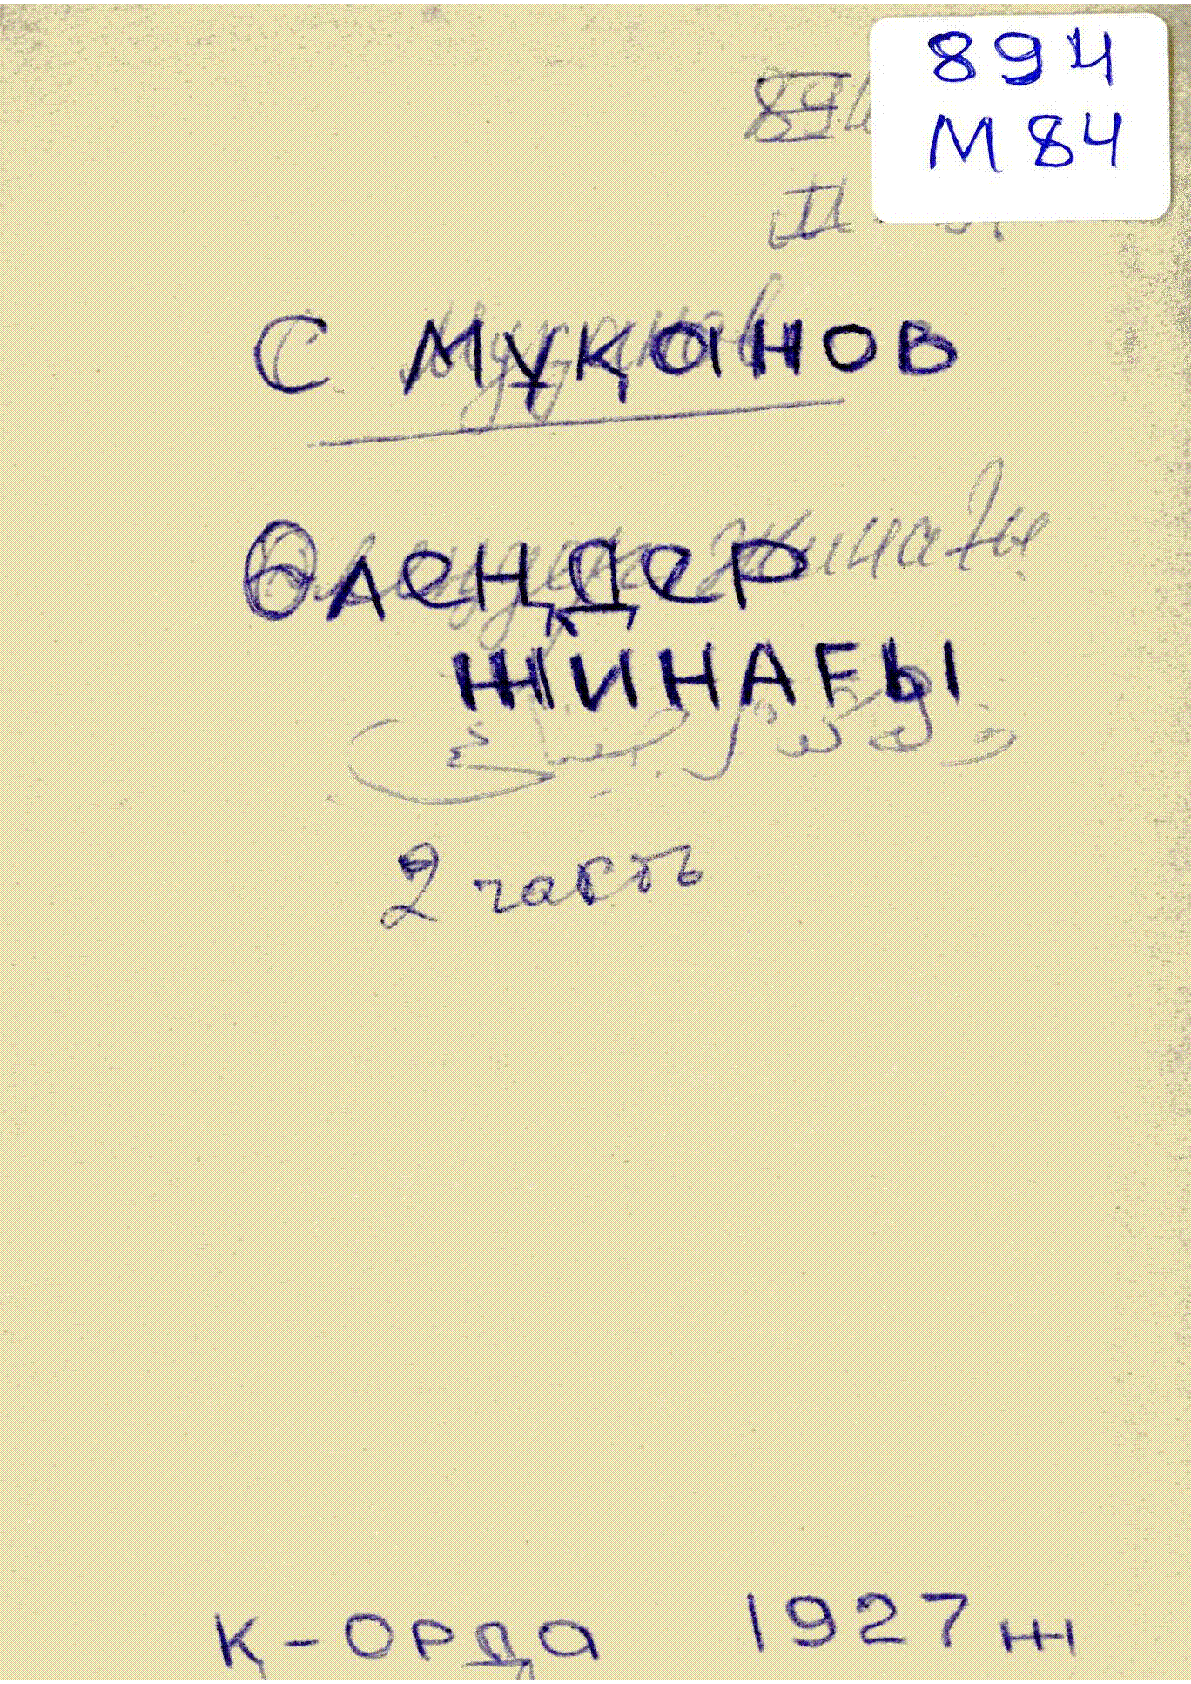 894
М 84
894
С Мұқанов
Өлеңдер
ЖИНАҒЫ
2 часть
Қ-Орда 1927 ж